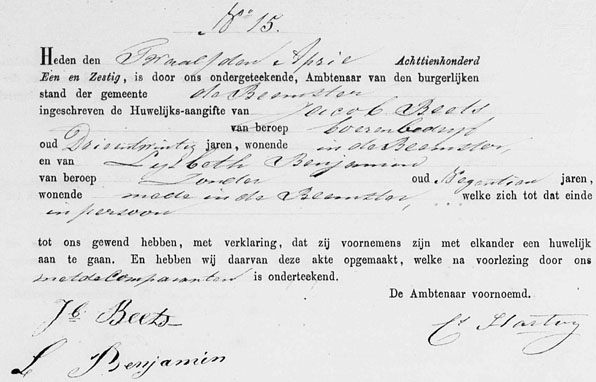 No 15.
Heden den Twaalfden April Achttienhonderd
Een en Zestig, is door ons ondergeteekende, Ambtenaar van den burgerlijken
stand der gemeente de Beemster
ingeschreven de Huwelijks-aangifte van Jacob Beets
van beroep boerenbedrijf
oud Drieentwintig jaren, wonende in de Beemster,
en van Lijsbeth Benjamin
van beroep Zonder oud Negentien jaren,
wonende mede in de Beemster, welke zich tot dat einde
in persoon
tot ons gewend hebben, met verklaring, dat zij voornemens zijn met elkander een huwelijk
aan te gaan. En hebben wij daarvan deze akte opgemaakt, welke na voorlezing door ons
met de Comparanten is onderteekend.
De Ambtenaar voornoemd.
Jb Beets
L Benjamin